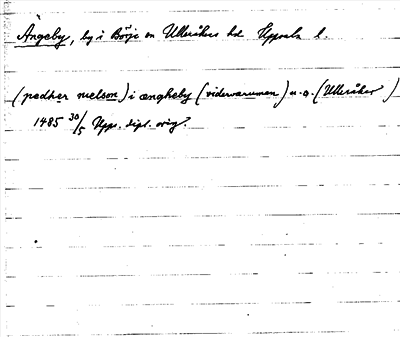 Ängeby, by i Börje sn Ulleråkers hd Uppsala l.
(pædher nielson) i ængheby (widervarumen) u. a. (Ulleråker)
1485 30/5 Upps. dipl. orig.